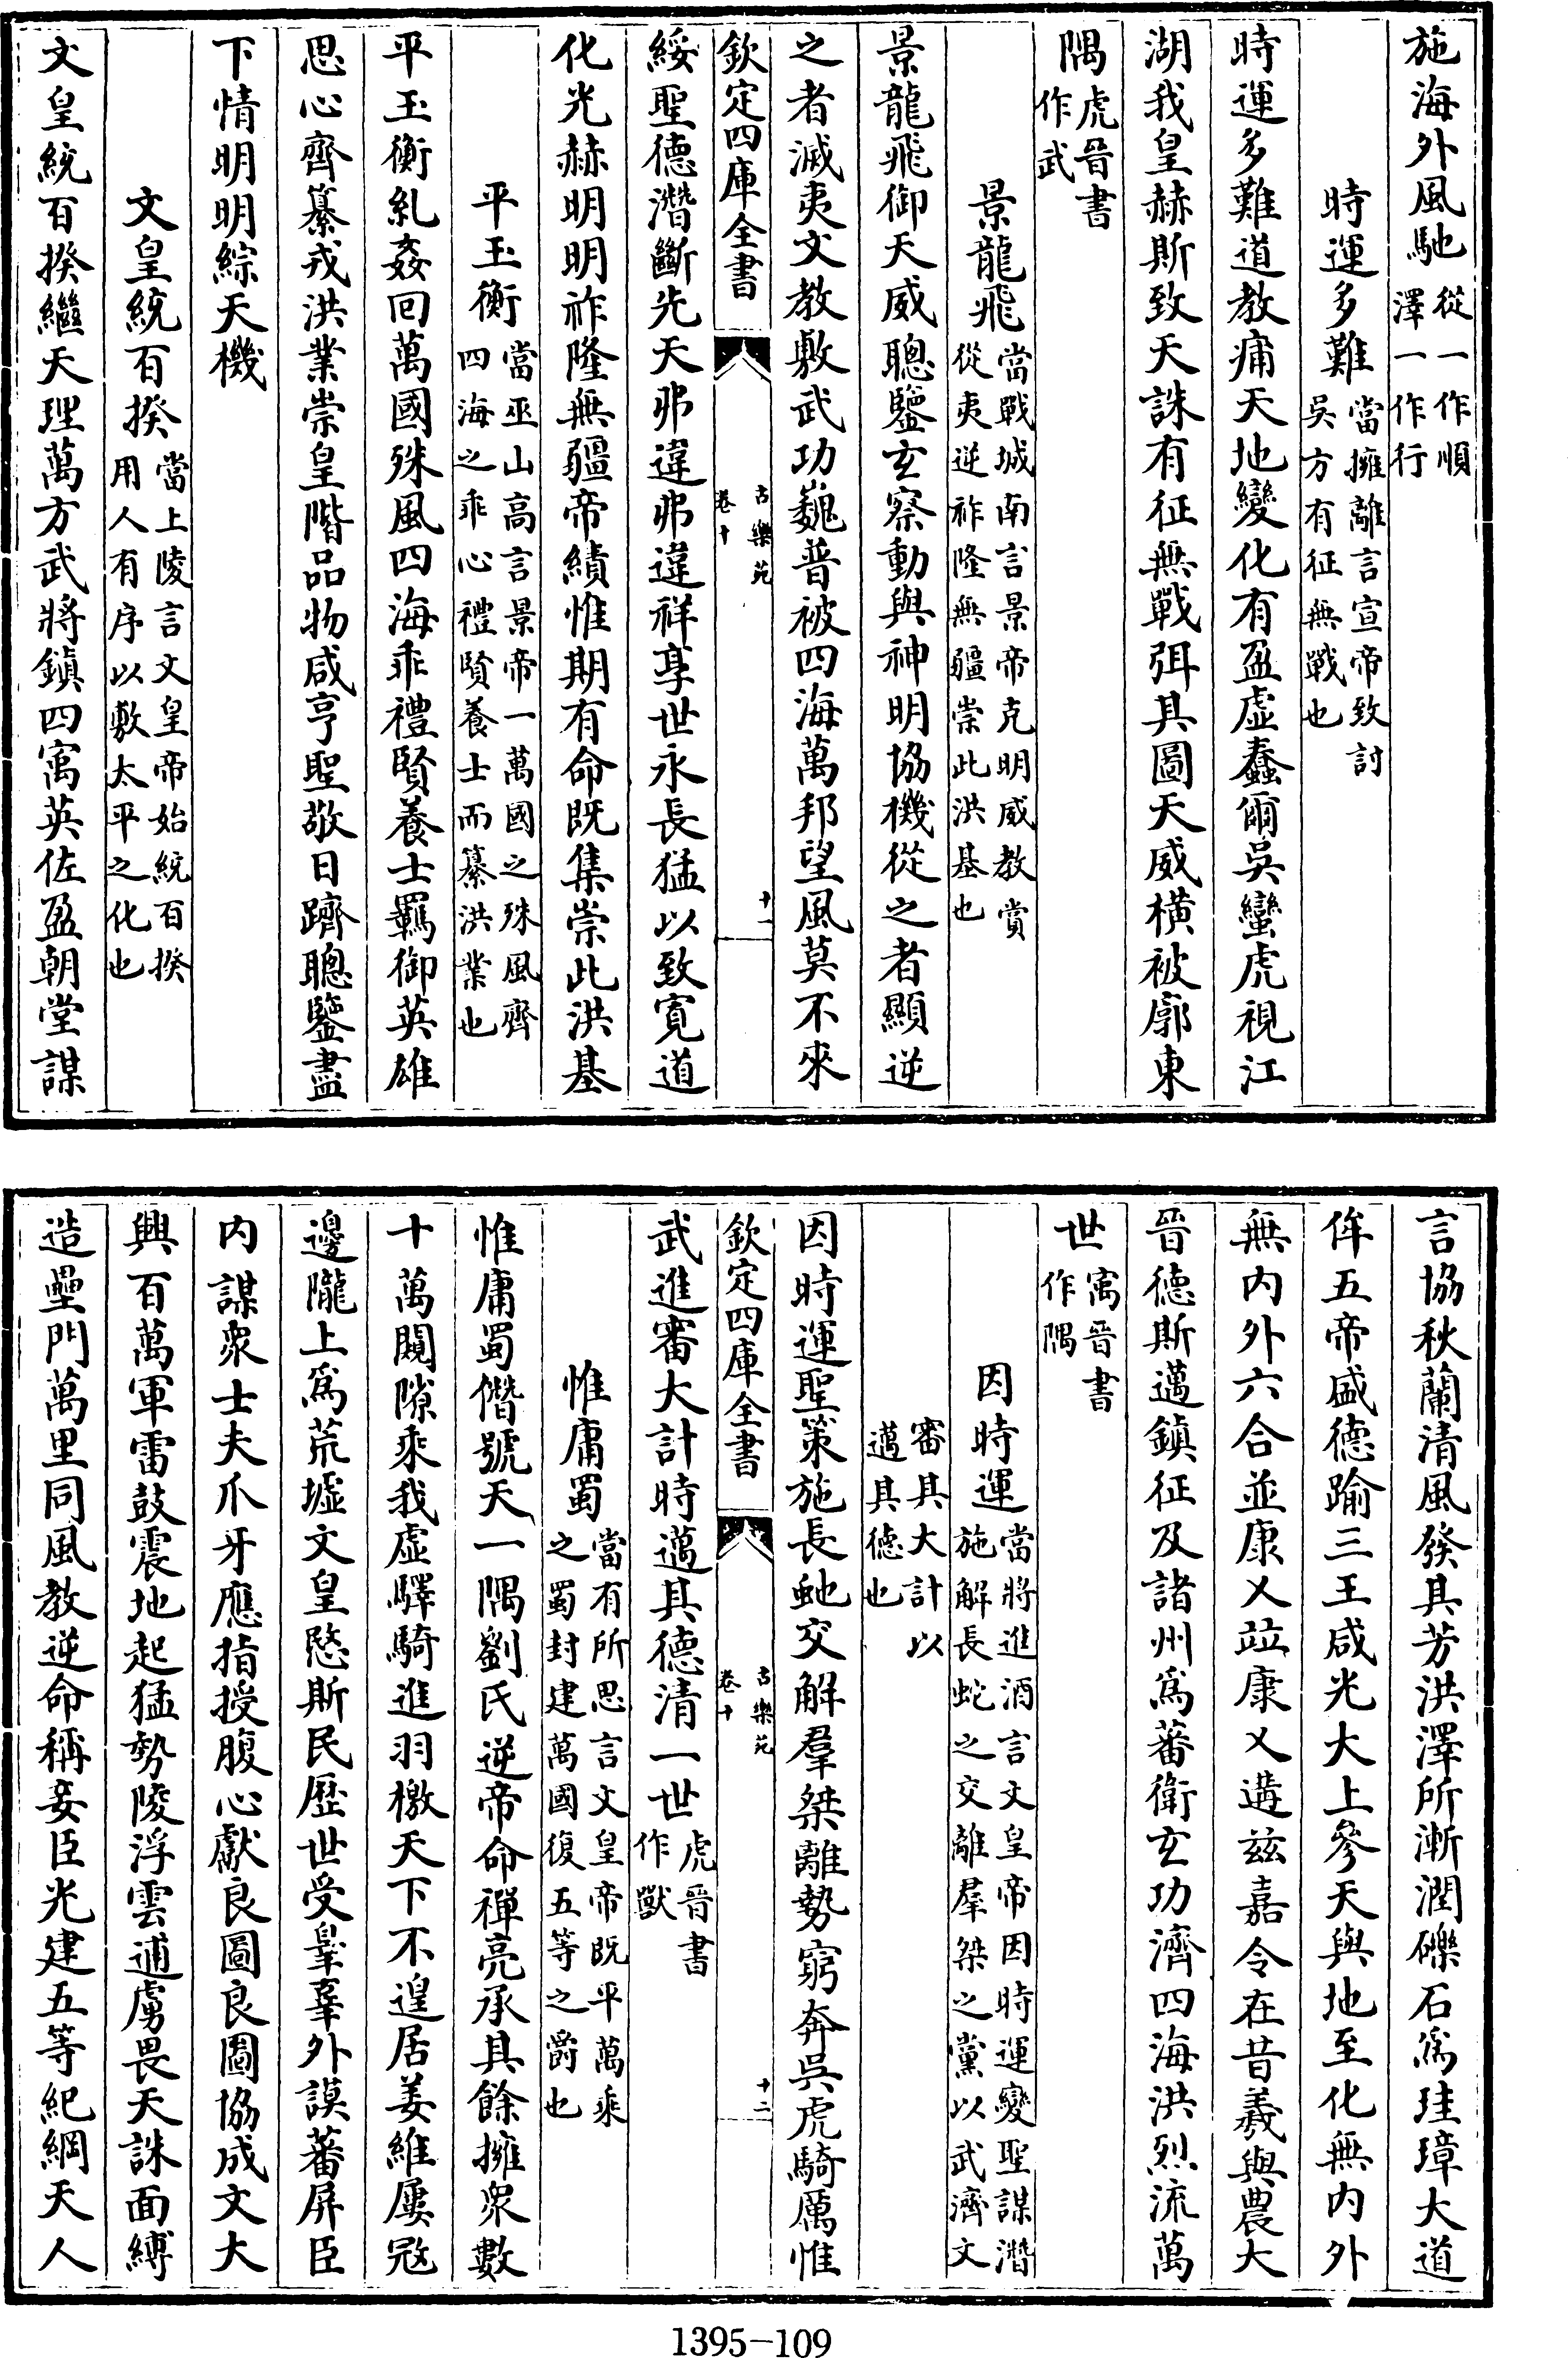 施海外風馳從一作順
澤一作行
時運多難當擁離言宣帝致討
吳方有征無戰也
時運多難道教痡天地變化有盈虛蠢爾吳蠻虎視江
湖我皇赫斯致天誅有征無戰弭其圖天威橫被廓東
隅虎晉書
作武
景龍飛當戰城南言景帝克明威教賞
從夷逆祚隆無疆崇此洪基也
景龍飛御天威聰鑒玄察動與神明協機從之者顯逆
之者滅夷文教敷武功巍普被四海萬邦望風莫不來
欽定四庫全書
古樂苑
卷十
十一
綏聖德潛斷先天弗違弗違祥享世永長猛以致寛道
化光赫明明祚隆無疆帝績惟期有命既集崇此洪基
平玉衡當巫山高言景帝一萬國之殊風齊
四海之乖心禮賢養士而纂洪業也
平玉衡糺姦回萬國殊風四海乖禮賢養士羈御英雄
思心齊纂戎洪業崇皇階品物咸亨聖敬日躋聰鑒盡
下情明明綜天機
文皇統百揆當上陵言文皇帝始統百揆
用人有序以敷太平之化也
文皇統百揆繼天理萬方武將鎮四㝢英佐盈朝堂謀
言協秋蘭清風發其芳洪澤所漸潤礫石爲珪璋大道
侔五帝盛德踰三王咸光大上參天與地至化無内外
無内外六合並康乂竝康乂遘茲嘉令在昔羲與農大
晉德斯邁鎮征及諸州爲蕃衛玄功濟四海洪烈流萬
世㝢晉書
作隅
因時運當將進酒言文皇帝因時運變聖謀潛
施解長蛇之交離羣桀之黨以武濟文
審其大計以
邁其德也
因時運聖策施長虵交解羣桀離勢窮奔吳虎騎厲惟
欽定四庫全書
古樂苑
卷十
十二
武進審大計時邁其德清一世虎晉書
作獸
惟庸蜀當有所思言文皇帝既平萬乘
之蜀封建萬國復五等之爵也
惟庸蜀僭號天一隅劉氏逆帝命禪亮承其餘擁衆數
十萬闚隙乘我虛驛騎進羽檄天下不遑居姜維屢宼
邊隴上爲荒墟文皇愍斯民歴世受辠辜外謨蕃屏臣
内謀衆士夫爪牙應指授腹心獻良圖良圖協成文大
興百萬軍雷鼓震地起猛勢陵浮雲逋虜畏天誅面縛
造壘門萬里同風教逆命稱妾臣光建五等紀綱天人
1395-109